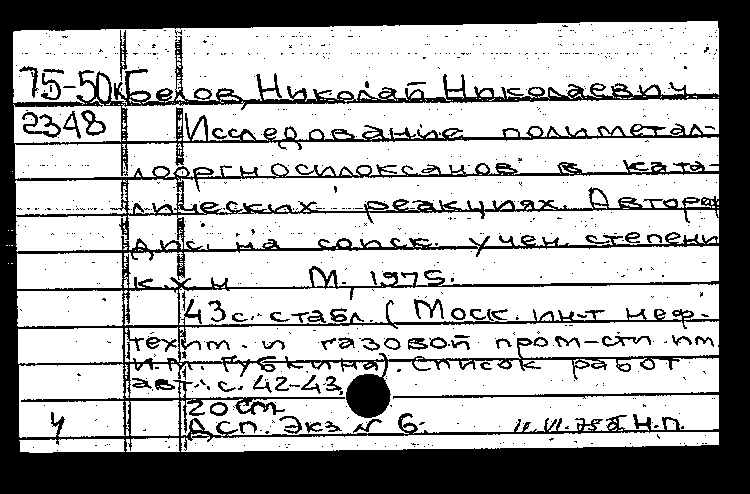 75-50к Белов, Николай Николаевич
2348 Исследование полиметал-
лооргносилоксанов в ката-
лических реакциях. Автореф
дис. на соиск. учен. степени
к.х.н М., 1975.
43 с. с табл. (Моск. ин-т неф-
техим. и газовой пром-сти им.
И.М. Губкина). Список работ
авт.: с. 42-43
20 cm
Ч ДСП. Экз № 6. 11.VI.75 Н.П.